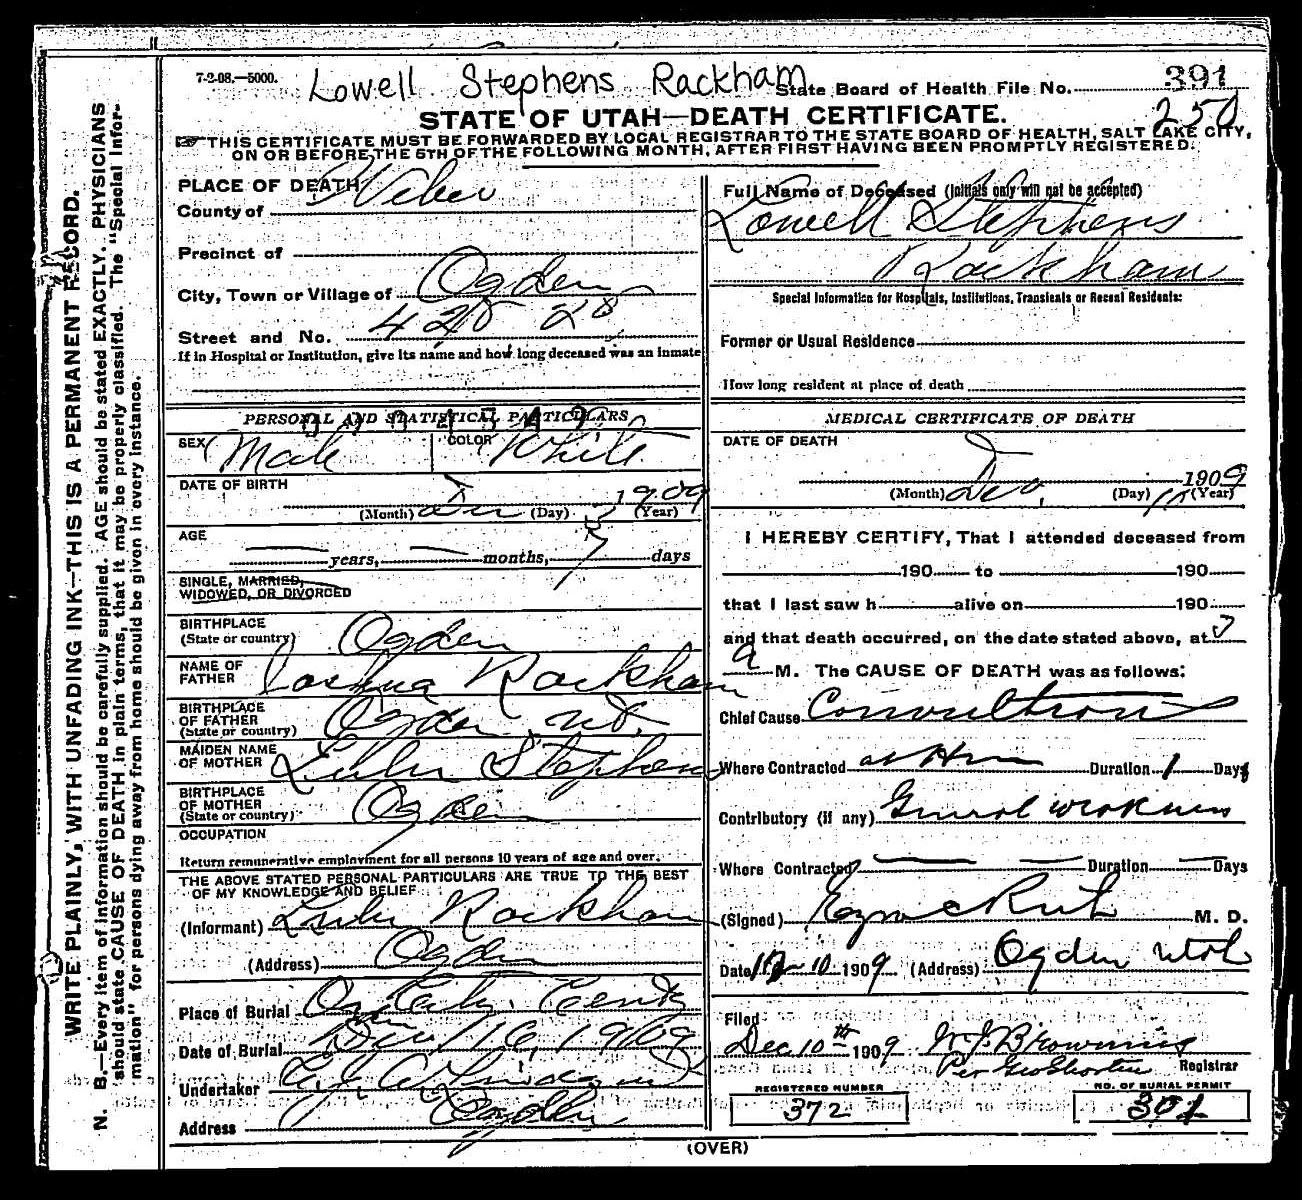 7-2-08.—5000.
Lowell Stephens Rackham
State Board of Health File No. 391
250
STATE OF UTAH—DEATH CERTIFICATE.
THIS CERTIFICATE MUST BE FORWARDED BY LOCAL REGISTRAR TO THE STATE BOARD OF HEALTH, SALT LAKE CITY,
ON OR BEFORE THE 5TH OF THE FOLLOWING MONTH, AFTER FIRST HAVING BEEN PROMPTLY REGISTERED.
WRITE PLAINLY, WITH UNFADING INK—THIS IS A PERMANENT RECORD.
N. B.—Every item of information should be carefully supplied. AGE should be stated EXACTLY. PHYSICIANS
should state CAUSE OF DEATH in plain terms, that it may be properly classified. The "Special Infor-
mation" for persons dying away from home should be given in every instance.
PLACE OF DEATH
County of Weber
Precinct of
City, Town or Village of Ogden
Street and No. 428 28
If in Hospital or Institution, give its name and how long deceased was an inmate
PERSONAL AND STATISTICAL PARTICULARS
SEX Male COLOR White
DATE OF BIRTH
(Month) Dec (Day) 3 (Year) 1909
AGE
years, months, 7 days
SINGLE, MARRIED,
WIDOWED, OR DIVORCED
BIRTHPLACE
(State or country) Ogden
NAME OF
FATHER Joshua Rackham
BIRTHPLACE
OF FATHER
(State or country) Ogden, Ut.
MAIDEN NAME
OF MOTHER Lulu Stephens
BIRTHPLACE
OF MOTHER
(State or country) Ogden
OCCUPATION
Return remunerative employment for all persons 10 years of age and over.
THE ABOVE STATED PERSONAL PARTICULARS ARE TRUE TO THE BEST
OF MY KNOWLEDGE AND BELIEF
(Informant) Lulu Rackham
(Address) Ogden
Place of Burial Ogden City Cemty
Date of Burial Dec 10, 1909
Undertaker
Address Ogden
Full Name of Deceased (Initials only will not be accepted)
Lowell Stephens
Rackham
Special Information for Hospitals, Institutions, Transients or Recent Residents:
Former or Usual Residence
How long resident at place of death
MEDICAL CERTIFICATE OF DEATH
DATE OF DEATH
1909
(Month) Dec. (Day) 10 (Year)
I HEREBY CERTIFY, That I attended deceased from
190 to 190
that I last saw h alive on 190
and that death occurred, on the date stated above, at 7
a M. The CAUSE OF DEATH was as follows:
Chief Cause Convultions
Where Contracted at Home Duration 1 Days
Contributory (if any) General weakness
Where Contracted Duration Days
(Signed) Ezra C Rich M. D.
Date 12-10 1909 (Address) Ogden Utah
Filed
Dec 10th 1909 W J Browning
Per Geo Shorten Registrar
REGISTERED NUMBER
372
NO. OF BURIAL PERMIT
301
(OVER)